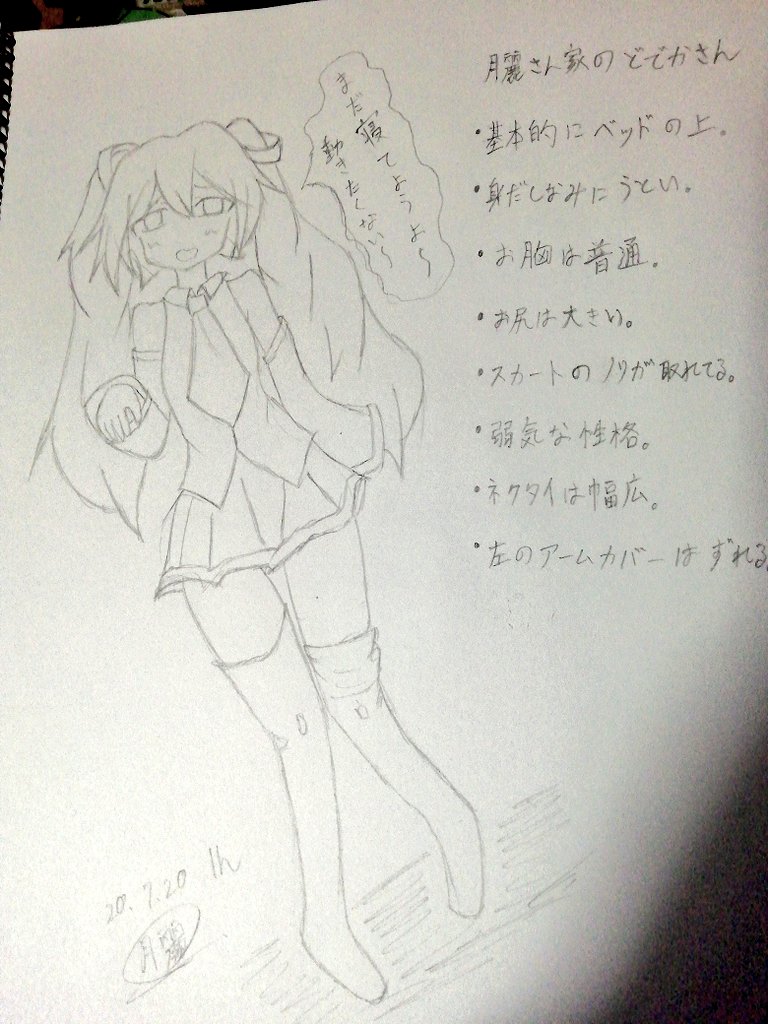 月麗さん家のどでかさん
・基本的にベッドの上。
・身だしなみにうとい。
・お胸は普通。
・お尻は大きい。
・スカートのノリが取れてる。
・弱気な性格。
・ネクタイは幅広。
・左のアームカバーはずれる
まだ寝てようよ〜
動きたくない〜
20.7.20 1h
月麗